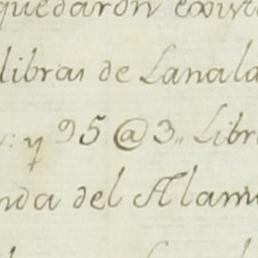 quedaron exist
libras de Lanala
: y 95 @ 3,, Libr
nda del Alam